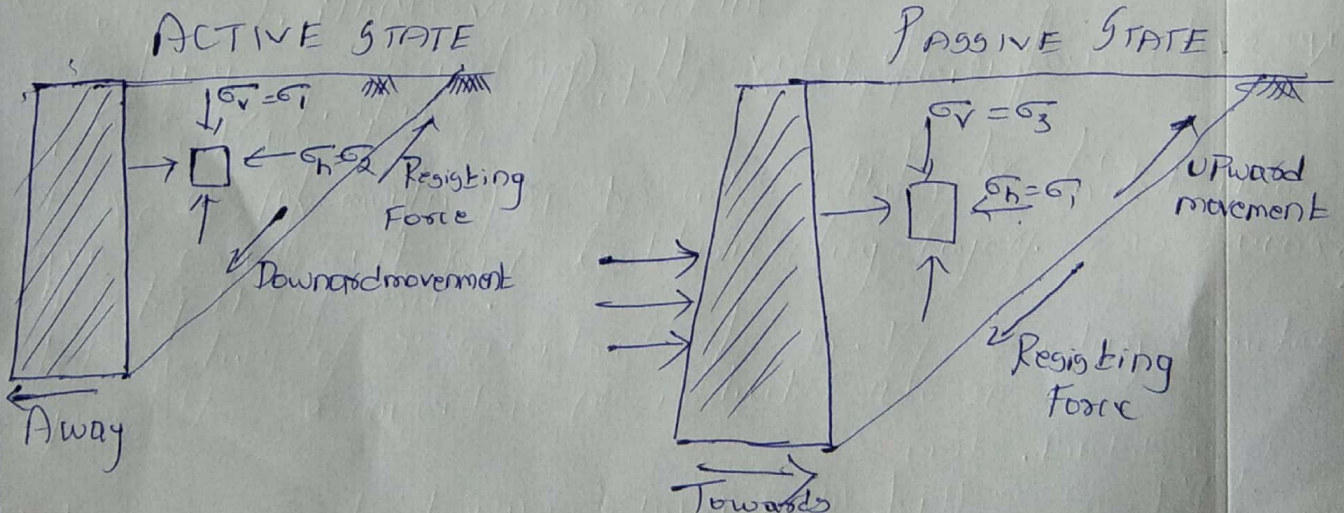 ACTIVE STATE
σv = σ1
σh = σ2
Resisting
Force
Downard movenment
Away
PASSIVE STATE.
σv = σ3
σh = σ1
UPward
movement
Resisting
Force
Towards